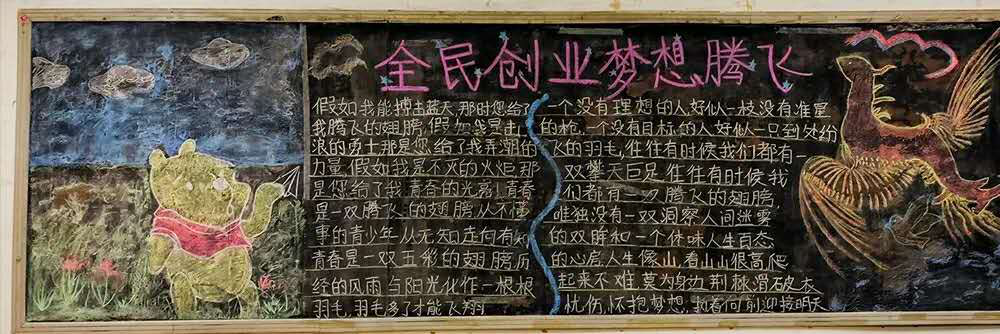 全民创业梦想腾飞
假如我能搏击蓝天,那时您给了
我腾飞的翅膀,假如我是击
浪的勇士那是您给了我弄潮的
力量,假如我是不灭的火炬那
是您给了我青春的光亮!青春
是一双腾飞的翅膀从不懂
事的青少年从无知走向有知
青春是一双五彩的翅膀历
经的风雨与阳光化作一根根
羽毛,羽毛多了才能飞翔
一个没有理想的人好似一枝没有准星
的枪,一个没有目标的人好似一只到处纷
飞的羽毛,往往有时候我们都有一
双擎天巨足往往有时候我
们都有一双腾飞的翅膀,
唯独没有一双洞察人间迷雾
的双眸和一个体味人生百态
的心层,人生像山,看山山很高爬
起来不难,莫为身边荆棘滑石破本
忧伤,怀抱梦想,执着向前迎接明天